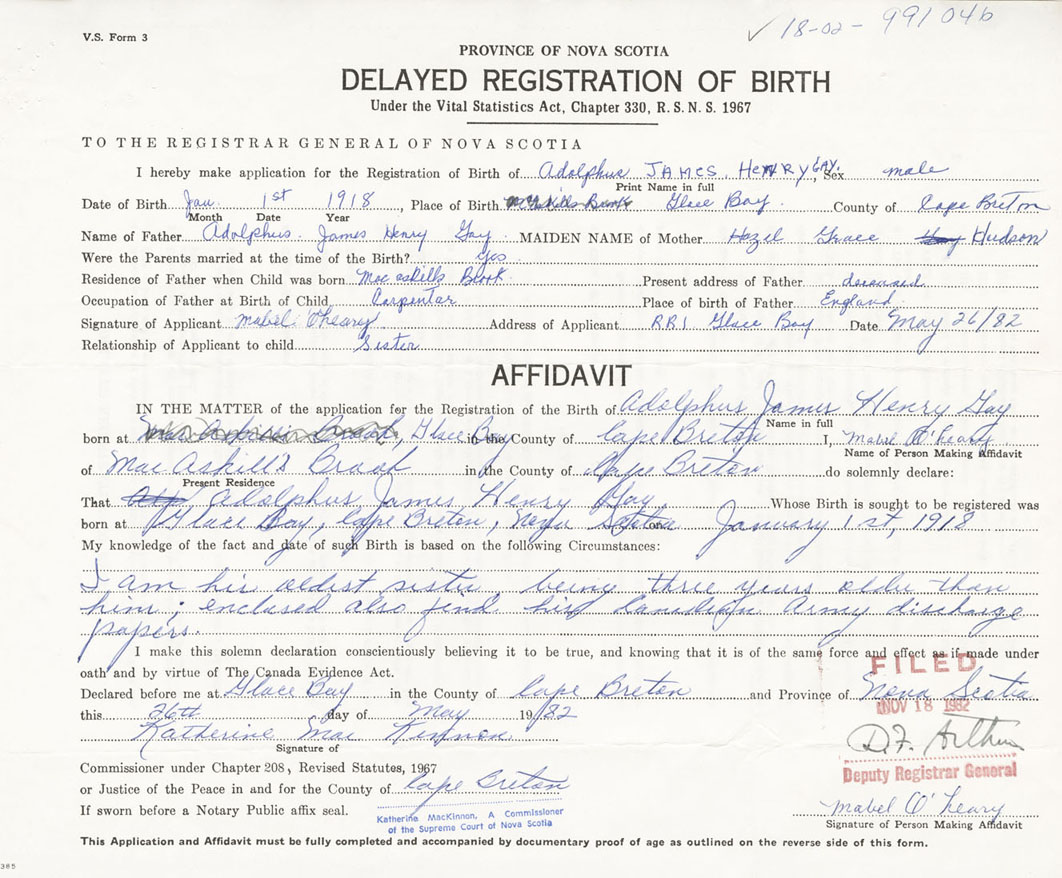 V.S. Form 3
18-02- 991046
PROVINCE OF NOVA SCOTIA
DELAYED REGISTRATION OF BIRTH
Under the Vital Statistics Act, Chapter 330, R.S.N.S. 1967
TO THE REGISTRAR GENERAL OF NOVA SCOTIA
I hereby make application for the Registration of Birth of Adolphus JAMES HENRY GAY. Sex male
Print Name in full
Date of Birth Jan. 1st 1918, Place of Birth Glace Bay. County of Cape Breton
Month Date Year
Name of Father Adolphus James Henry Gay MAIDEN NAME of Mother Hazel Grace Hudson
Were the Parents married at the time of the Birth? Yes
Residence of Father when Child was born Mac askills Brook Present address of Father deceased
Occupation of Father at Birth of Child Carpentar Place of birth of Father England
Signature of Applicant Mabel O'Heary Address of Applicant RR1 Glace Bay Date May 26/82
Relationship of Applicant to child Sister
AFFIDAVIT
IN THE MATTER of the application for the Registration of the Birth of Adolphus James Henry Gay
Name in full
born at Glace Bay in the County of Cape Breton I, Mabel O'Heary
Name of Person Making Affidavit
of Mac Askill's Brook in the County of Cape Breton do solemnly declare:
Present Residence
That Adolphus James Henry Gay Whose Birth is sought to be registered was
born at Glace Bay, Cape Breton, Nova Scotia on January 1st, 1918
My knowledge of the fact and date of such Birth is based on the following Circumstances:
I am his oldest sister being three years older than
him; enclosed also find his Canadian Army discharge
papers.
I make this solemn declaration conscientiously believing it to be true, and knowing that it is of the same force and effect as if made under
oath and by virtue of The Canada Evidence Act.
FILED
Declared before me at Glace Bay in the County of Cape Breton and Province of Nova Scotia
NOV 18 1982
this 26th day of May 1982
Katherine Mac Kinnon
Signature of
D.F. Arthur
Commissioner under Chapter 208, Revised Statutes, 1967
Deputy Registrar General
or Justice of the Peace in and for the County of Cape Breton
If sworn before a Notary Public affix seal.
Katherine MacKinnon, A Commissioner
of the Supreme Court of Nova Scotia
Mabel O'Heary
Signature of Person Making Affidavit
This Application and Affidavit must be fully completed and accompanied by documentary proof of age as outlined on the reverse side of this form.
385